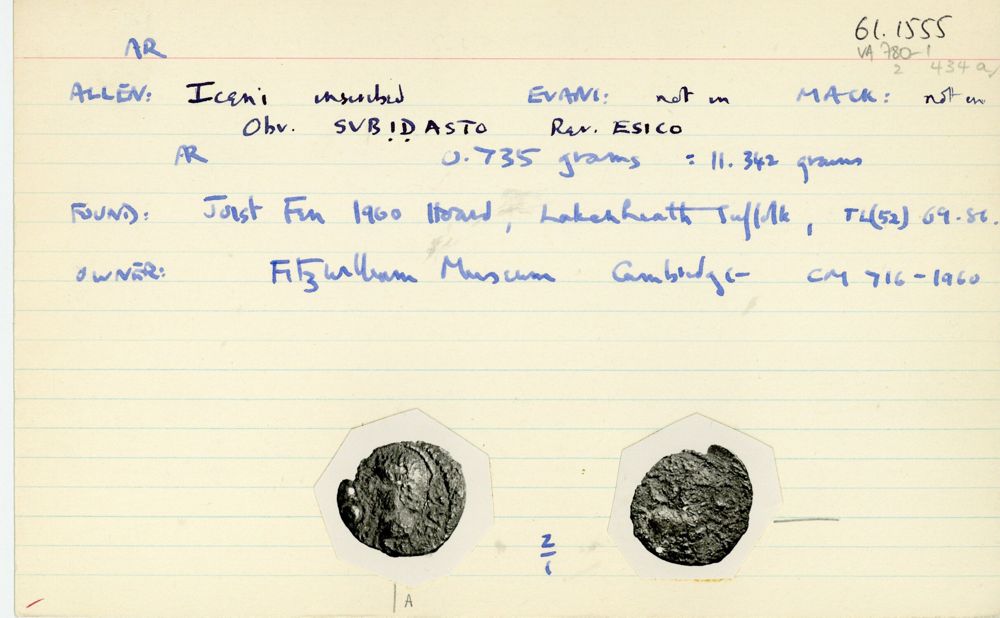 61.1555
AR
VA 780-1
2 434a
ALLEN: Iceni inscribed EVANS: not in MACK: not in
Obv. SUBIDASTO Rev. ESICO
AR 0.735 grams = 11.342 grains
FOUND: Joist Fen 1960 Hoard, Lakenheath Suffolk, TL(52) 69.86.
OWNER: Fitzwilliam Museum Cambridge CM 716-1960
2/1
A